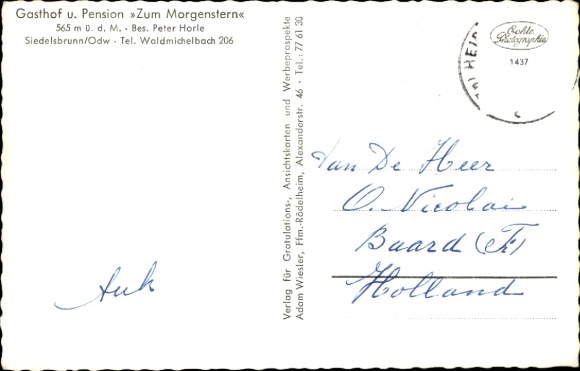 Gasthof u. Pension »Zum Morgenstern«
565 m ü. d. M. - Bes. Peter Horle
Siedelsbrunn/Odw - Tel. Waldmichelbach 206
Auk
Verlag für Gratulations-, Ansichtskarten und Werbeprospekte
Adam Wiesler, Ffm.-Rödelheim, Alexanderstr. 46 - Tel.: 77 61 30
Echte
Photographie
1437
Van De Heer
O. Nicolai
Baard (Fr)
Holland